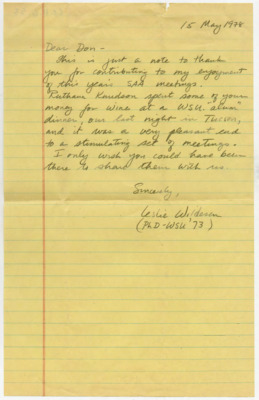 15 May 1978
Dear Don-
This is just a note to thank
you for contributing to my enjoyment
of this years SAA meetings.
Ruthann Knudson spent some of your
money for wine at a WSU "alum"
dinner, our last night in Tucson,
and it was a very pleasant end
to a stimulating set of meetings.
I only wish you could have been
there to share them with us.
Sincerely,
Leslie Wildesen
(PhD-WSU '73)